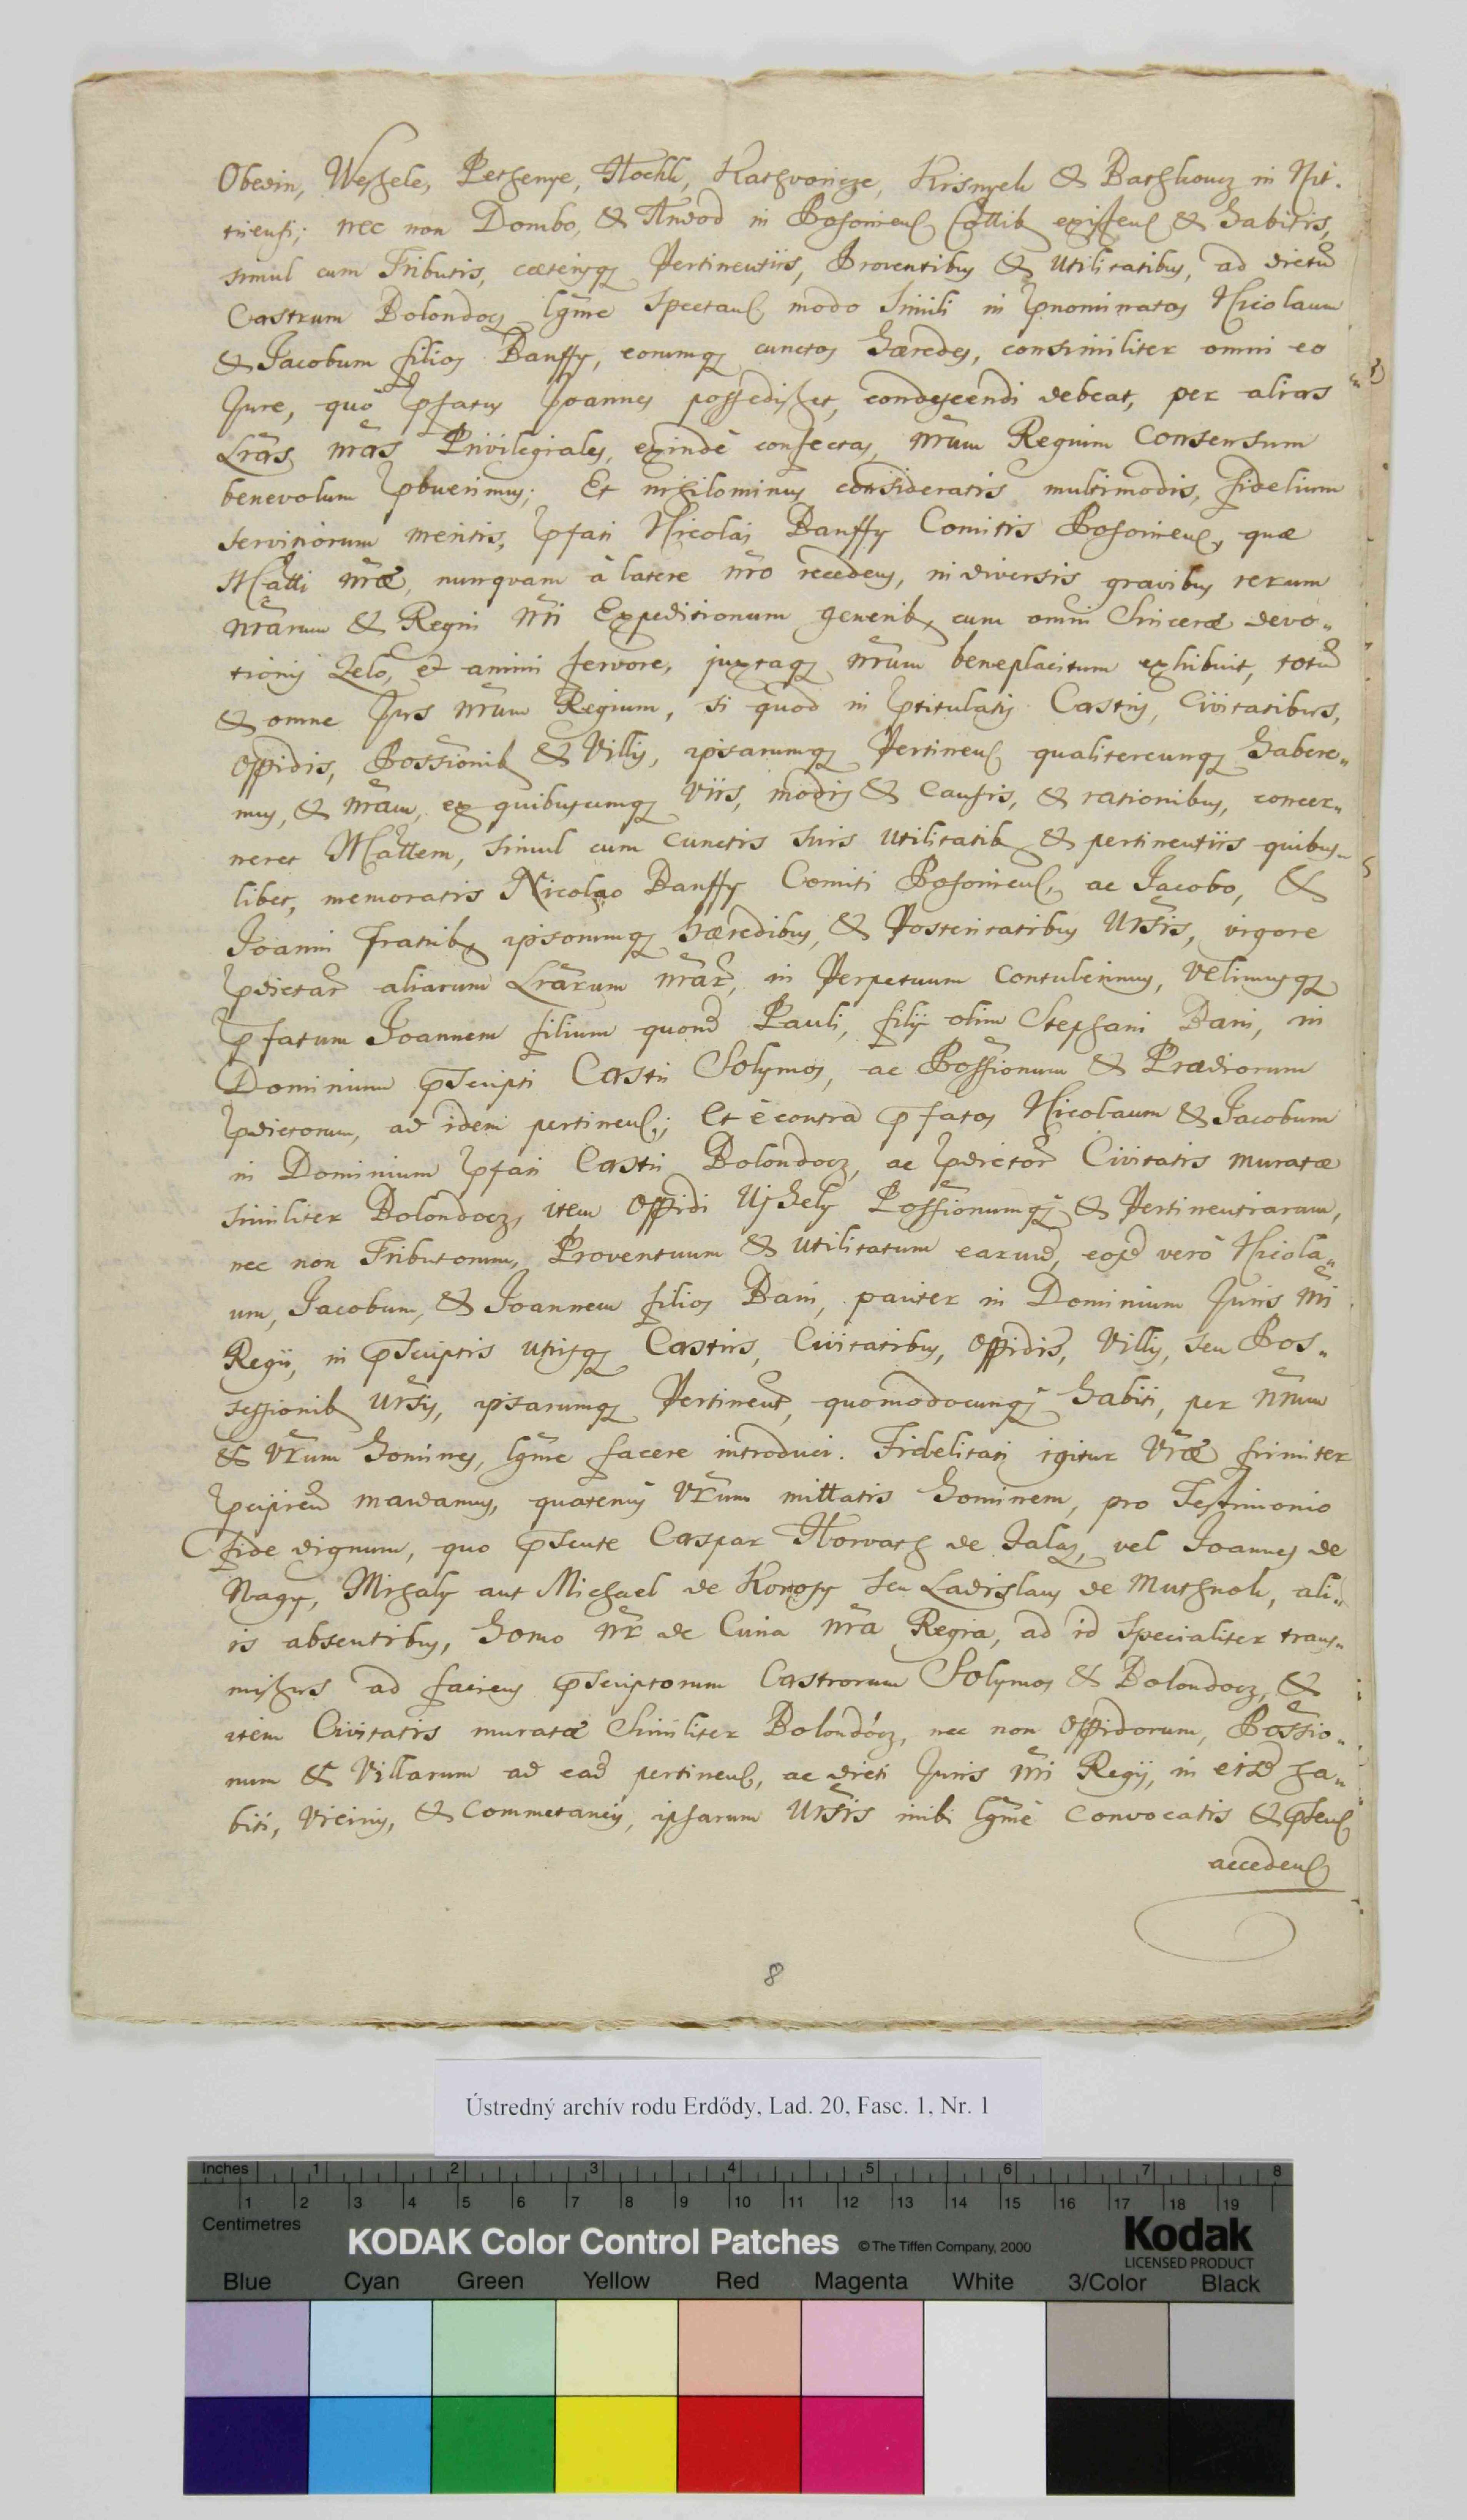 Obesin, Weszele, Petsenye, Hochk, Kathvoncze, Krisnyek & Barthkoucz in Nit-
triensi; nec non Dombo, & Anvod in Posonien Cottib existen & habitis,
simul cum Tributis, cæterisq Pertinentiis, Proventibus & Utilitatibus, ad dictũ
Castrum Bolondocz lgĩme spectan, modo simili in pnominatos Nicolaum
& Jacobum filios Banffy, eorumq cunctos hæredes, consimiliter omni eo
Jure, quô pfatus Joannes possedisset, condescendi debeat, per alias
Lrãs nrãs Privilegiales, exindè confectas, nrũm Regium Consensum
benevolum pbuerimus; Et nihilominus consideratis multimodis, fidelium
servitiorum meritis, pfati Nicolai Banffy Comitis Posonien, quæ
Mãtti nrãe, nunquam à latere nrõ recedens, in diversis gravibus rerum
nrãrum & Regni nrĩ Expeditionum generib, cum omni Sinceræ devo-
tionis Zelo, et animi fervore, juxtaq nrũm beneplacitum exhibuit, totũ
& omne Jus nrũm Regium, si quod in ptitulatis Castris, Civitatibus,
Oppidis, Possionib & Villis, ipsarumq Pertinen qualitercunq habere-
mus, & nrãm, ex quibuscumq viis, modis & causis, & rationibus, concer-
neret Mãttem, simul cum cunctis suis utilitatib & pertinentiis quibus-
libet, memoratis Nicolao Banffy Comiti Posonien, ac Jacobo, &
Joanni fratrib, ipsorumq hæredibus, & Posteritatibus Ursĩs, vigore
pdictar aliarum Lrãrum nrãr, in Perpetuum contulerimus, Velimusq
pfatum Joannem filium quond Pauli, filij olim Stephani Bani, in
Dominium pscripti Castri Solymos, ac Possionum & Prædiorum
pdictorum, ad idem pertinen; Et è contra pfatos Nicolaum & Jacobum
in Dominium pfati Castri Bolondocz, ac pdictor Civitatis muratæ
similiter Bolondocz, item Oppidi Ujhely Possionumq & Pertinentiarum,
nec non Tributorum, Proventuum & utilitatum earund, eosd verò Nicola-
um, Jacobum, & Joannem filios Bani, pariter in Dominium Juris nrĩ
Regii, in pscriptis utrisq Castris, Civitatibus, Oppidis, Villis, seu Pos-
sessionib ursĩs, ipsarumq Pertinent, quomodocunq habiti, per nrũm
& Vrũm homines, lgĩme facere introduci. Fidelitati igitur Vrãe firmiter
pcipiend mandamus, quatenus Vrũm mittatis hominem, pro Testimonio
fide dignum, quo psente Caspar Horvath de Jalas, vel Joannes de
Nagy, Mihaly aut Michael de Konosy seu Ladislaus de Muthnok, ali-
is absentibus, homo nr̃ de Curia nrã Regia, ad id specialiter trans-
missus ad facies pscriptorum Castrorum Solymos & Bolondocz, &
item Civitatis muratæ Similiter Bolondócz, nec non Oppidorum, Possio-
num & Villarum ad ead pertinen, ac dicti Juris nrĩ Regij, in eisd ha-
biti, vicinis, & commetaneis, ipsarum Ursĩs inibi lgĩme convocatis & psen
acceden
8
Ústredný archív rodu Erdődy, Lad. 20, Fasc. 1, Nr. 1
Inches 1 2 3 4 5 6 7 8
1 2 3 4 5 6 7 8 9 10 11 12 13 14 15 16 17 18 19
Centimetres
KODAK Color Control Patches © The Tiffen Company, 2000 Kodak
LICENSED PRODUCT
Blue Cyan Green Yellow Red Magenta White 3/Color Black